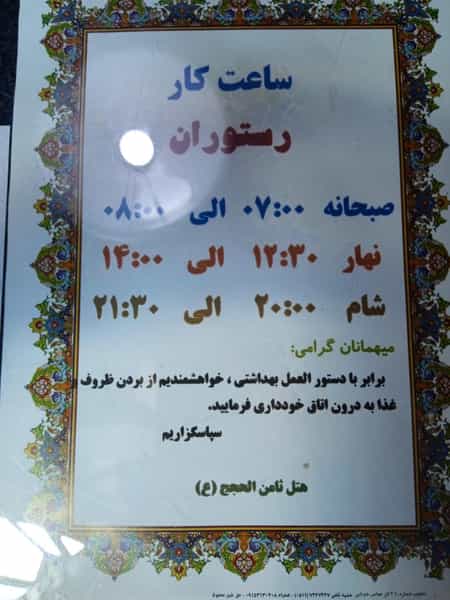 ساعت کار
رستوران
صبحانه ۰۷:۰۰ الی ۰۸:۰۰
نهار ۱۲:۳۰ الی ۱۴:۰۰
شام ۲۰:۰۰ الی ۲۱:۳۰
میهمانان گرامی:
برابر با دستور العمل بهداشتی ، خواهشمندیم از بردن ظروف
غذا به درون اتاق خودداری فرمایید.
سپاسگزاریم
هتل ثامن الحجج (ع)